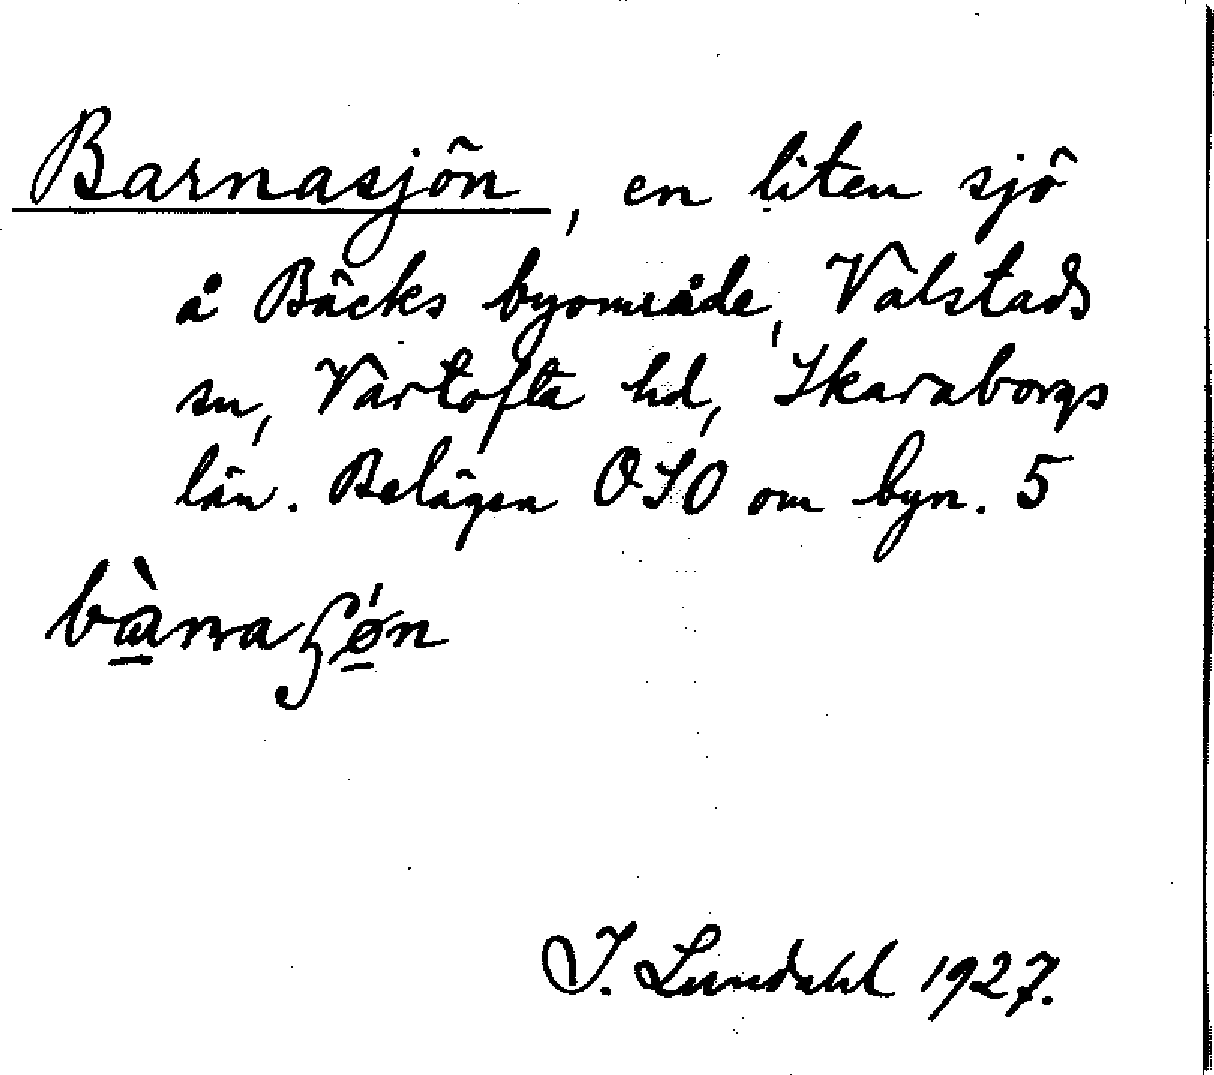 Barnasjön, en liten sjö
å Bäcks byområde, Valstads
sn, Vartofta hd, Skaraborgs
län. Belägen OSO om byn. 5
I. Lundahl 1927.